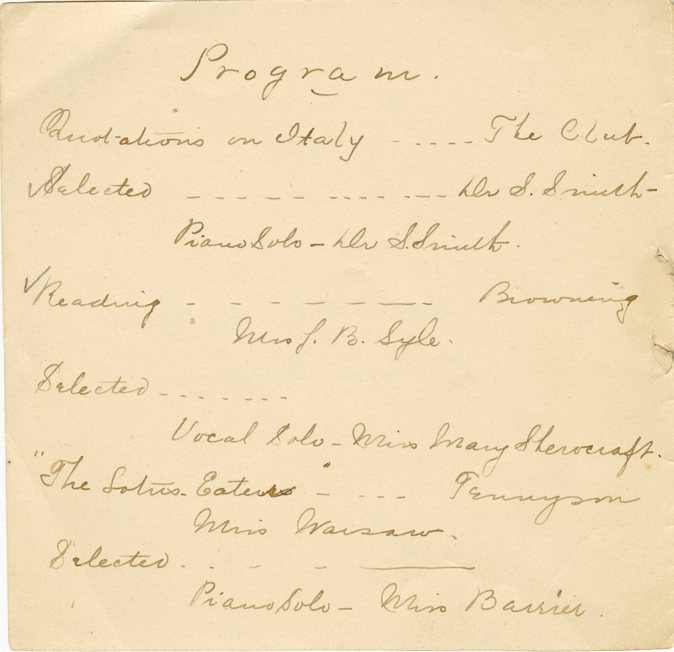 Program.
Quotations on Italy - - - - - The Club.
Selected - - - - - - - - - - - Dr S. Smith-
Piano Solo - Dr S. Smith.
Reading - - - - - - - - Browning
Mrs J. B. Syle.
Selected - - - - - - -
Vocal Solo - Miss Mary
"The Lotus-Eaters" - - - - Tennyson
Miss Warsaw.
Selected. - - - -
Piano Solo - Miss Barrier.